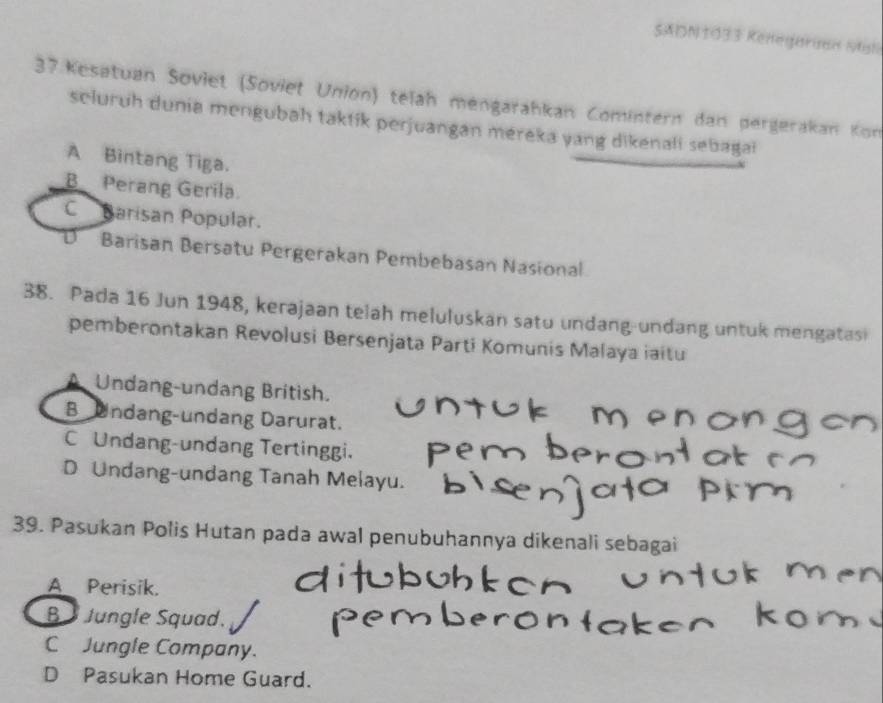 SADN1033 Kenegaraan
37. Kesatuan Soviet (Soviet Union) telah mengarahkan Comintern dan pergerakan Kom
seluruh dunia mengubah taktik perjuangan mereka yang dikenali sebagai
A Bintang Tiga.
B Perang Gerila.
C Barisan Popular.
D Barisan Bersatu Pergerakan Pembebasan Nasional
38. Pada 16 Jun 1948, kerajaan telah meluluskan satu undang-undang untuk mengatasi
pemberontakan Revolusi Bersenjata Parti Komunis Malaya iaitu
A Undang-undang British.
B Undang-undang Darurat. untuk menangan
C Undang-undang Tertinggi. pemberontakan
D Undang-undang Tanah Melayu. bisenjata pkm
39. Pasukan Polis Hutan pada awal penubuhannya dikenali sebagai
A Perisik. ditubuhkan untuk men
B Jungle Squad. pemberontakan kom
C Jungle Company.
D Pasukan Home Guard.